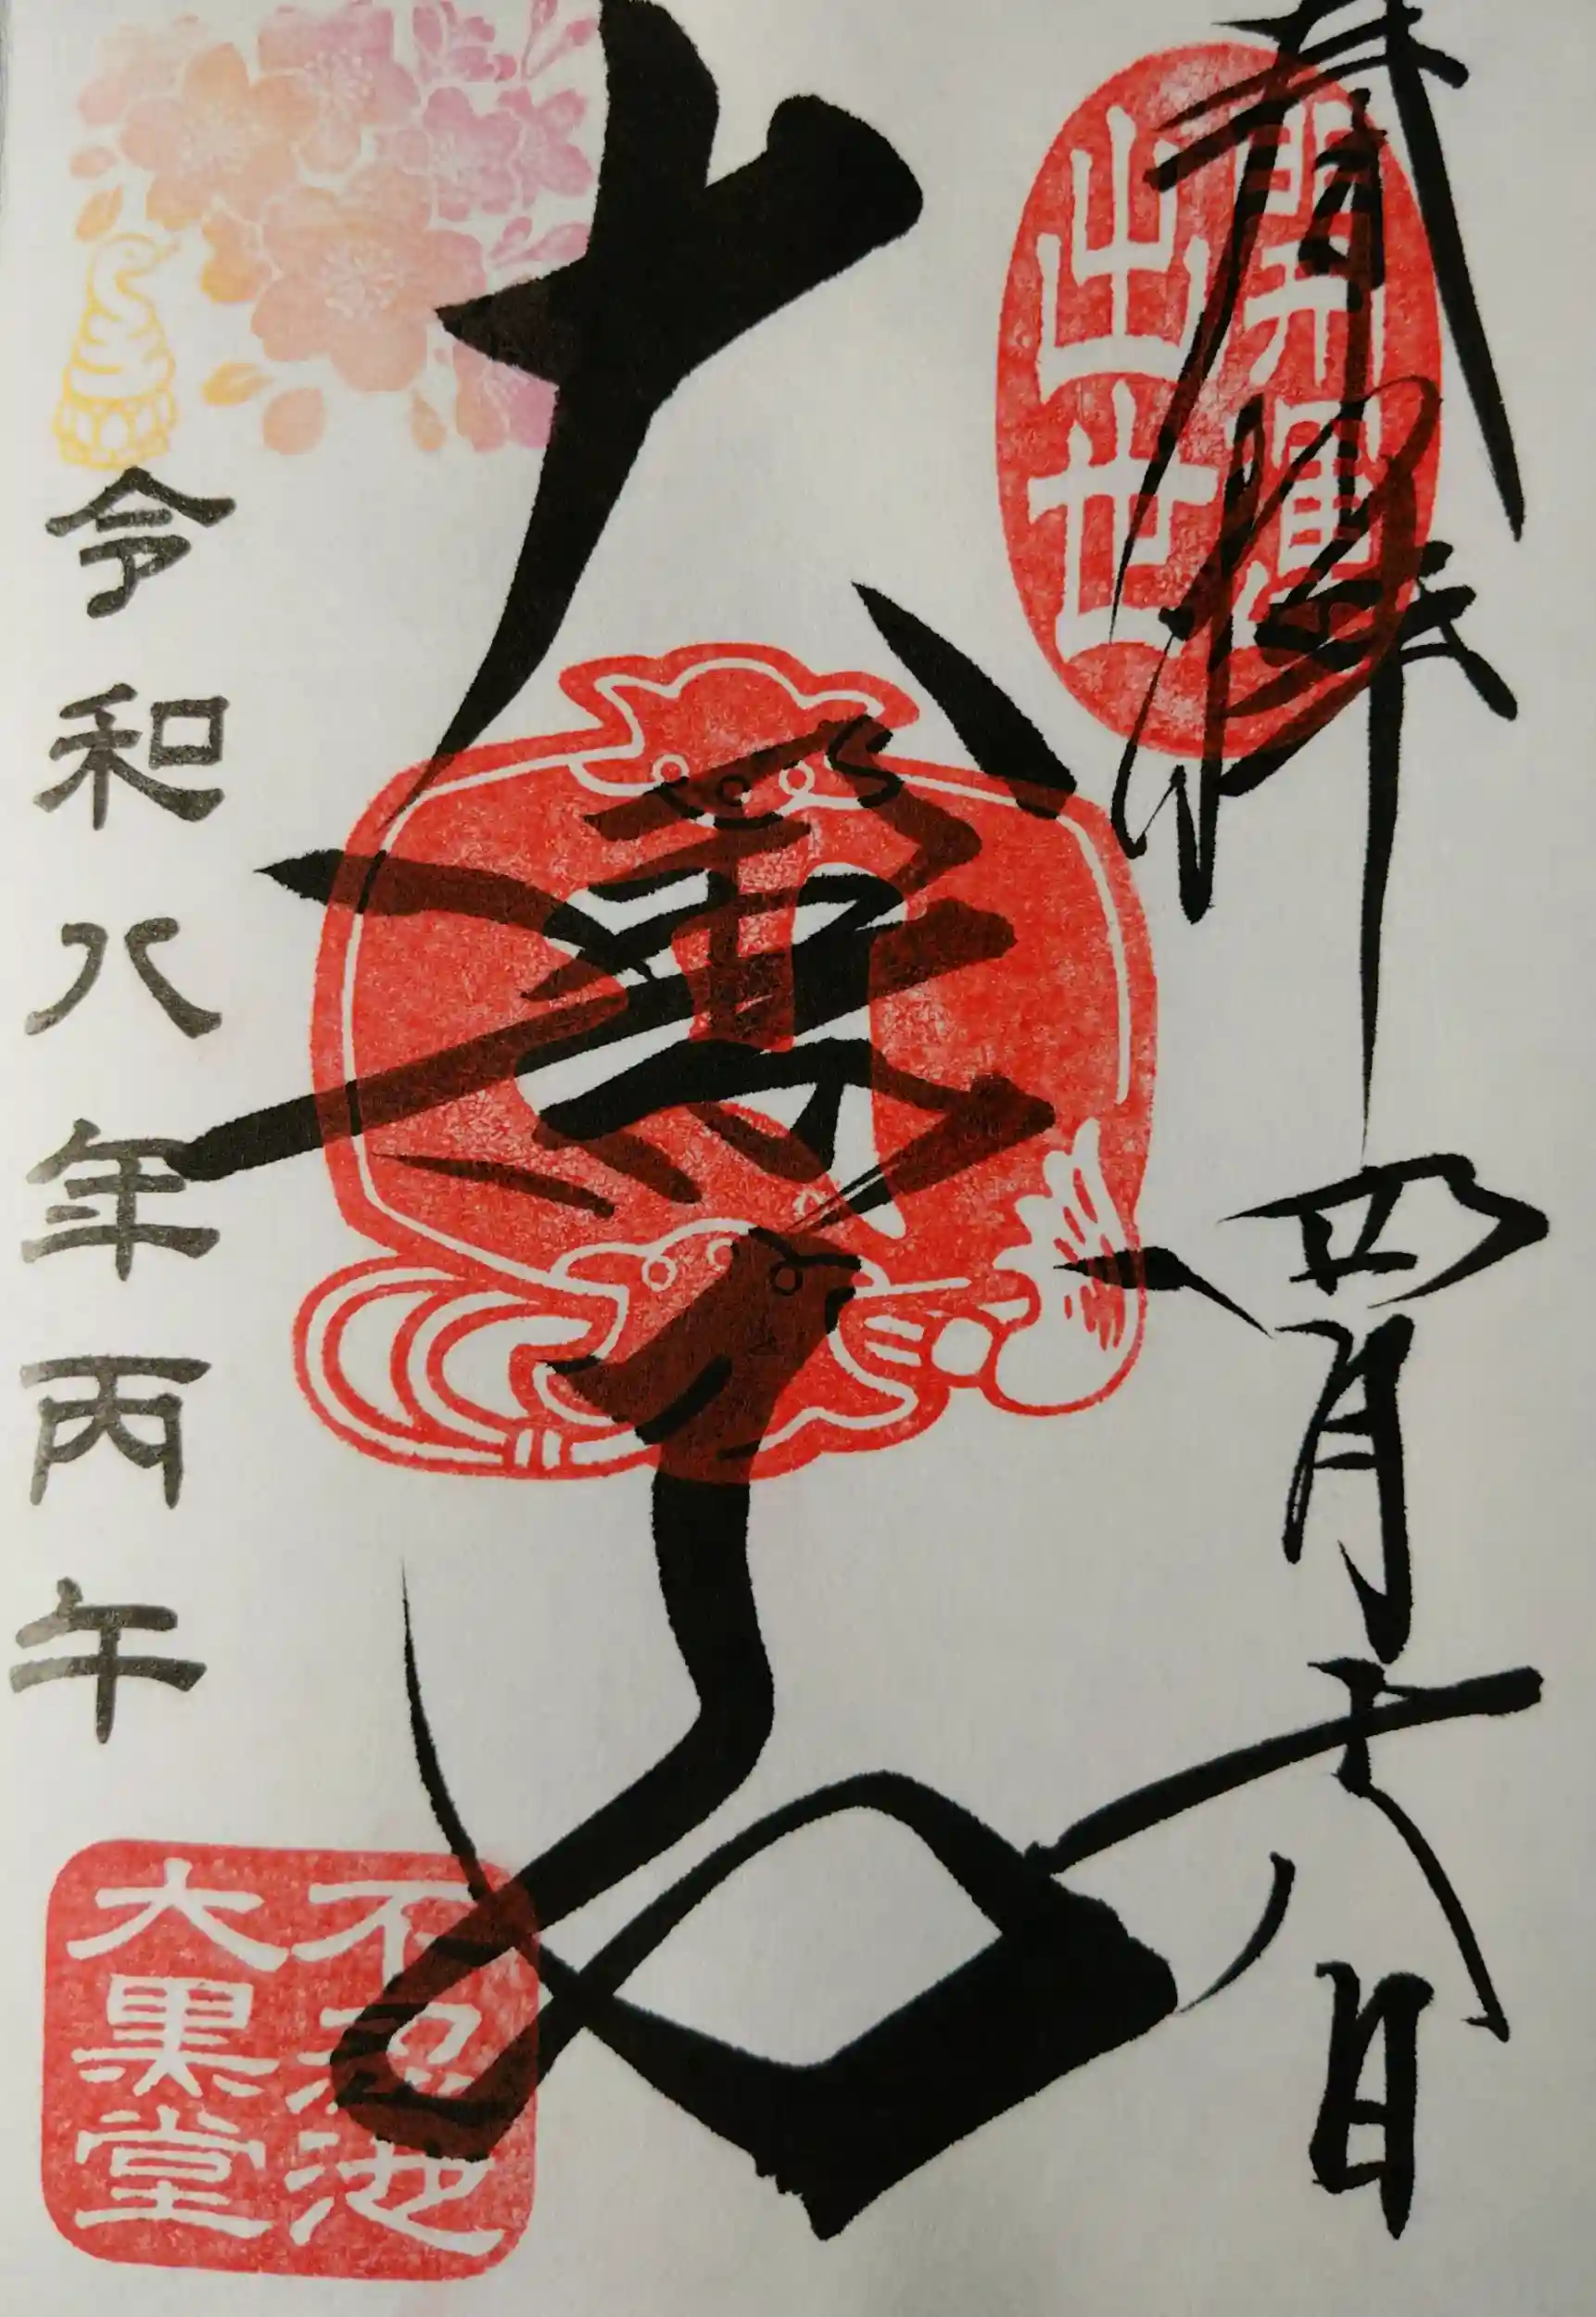 奉拝
四月十八日
開運
出世
大黒天
令和八年丙午
不忍池
大黒堂